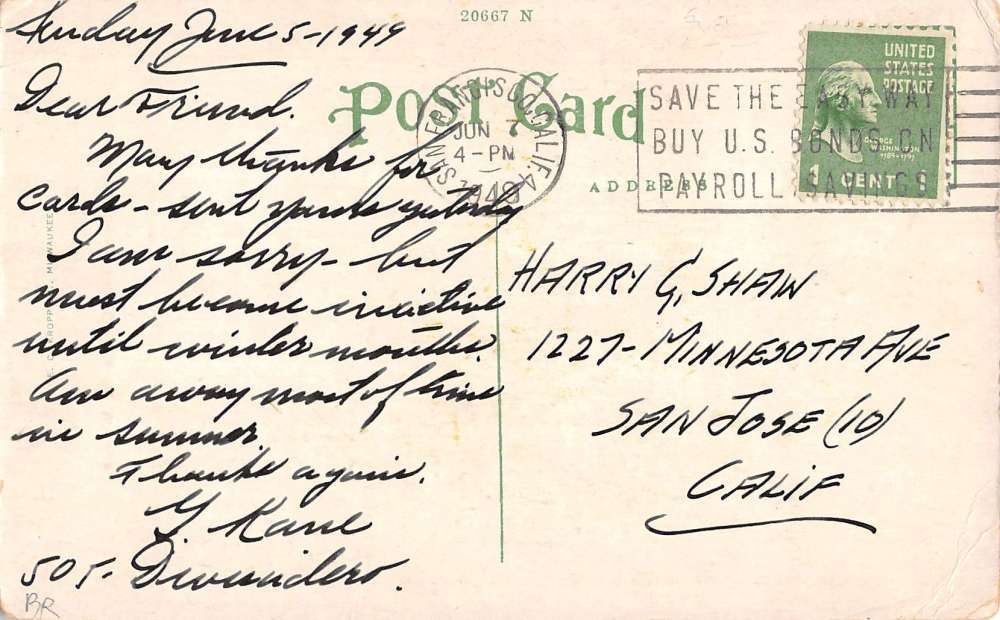 20667 N
Sunday June 5-1949
Dear Friend.
Many thanks for
cards - sent yours yesterday
I am sorry - but
must become inactive
until winter months.
Am away most of time
in summer.
Thanks again.
G Kane
505- Divisadero.
BR
Post Card
ADDRESS
SAN FRANCISCO, CALIF.
JUN 7
4-PM
1949
SAVE THE EASY WAY
BUY U.S. BONDS ON
PAYROLL SAVINGS
UNITED
STATES
POSTAGE
GEORGE
WASHINGTON
1789-1797
1 CENT 1
HARRY G. SHAW
1227- MINNESOTA AVE
SAN JOSE (10)
CALIF
MILWAUKEE